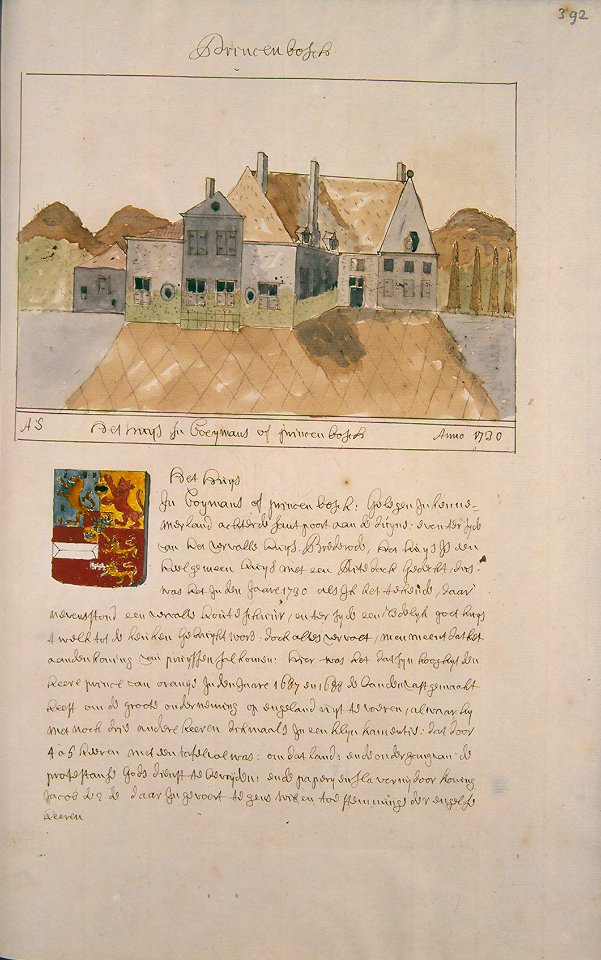 392
Princenbosch
AS
Het huijs In Boeymans of princenbosch
Anno 1730
Het Huijs
In Boijmans of princen bosch: Gelegen In kenne=
merland achter de sant poort aan de duyne: even ter zyde
van het vervalle huijs Brederode, het huijs Is een
heel gemeen huijs met een Riete dack Gedeckt, dus
was het In den Jaare 1730 als Ik het tekende, daar
nevenst stond een vervalle houte schuur, en ter zyde een Redelyk goet huijs
t welk tot de keuken Gebruykt word: doch alles vervalt, men meent dat het
aan den koning van pruyssen sal komen: hier was het dat syn hoogheyt den
heere prince van oranje In den Jaare 1687 en 1688 de banden vast gemaakt
heeft om de groote onderneming op engeland uyt te voeren, alwaar hy
met noch drie andere heeren in een klyn kamertie: dat door
4 a 5 heeren met een tafel vol was: om dat land: ende ondergang van de
protestanse Gods dienst te bevryden: ende papery en slavernij door koning
Jacob de 2 de daar In gevoert tegens wil en toe stemming der engelse
heeren